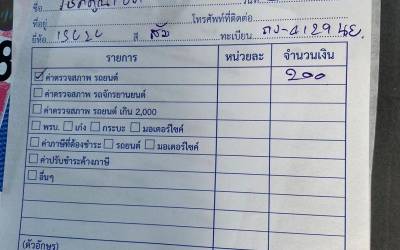 ชื่อ
ที่อยู่ โทรศัพท์ที่ติดต่อ
ยี่ห้อ ISUZU สี ส้ม ทะเบียน 4129 นย.
รายการ หน่วยละ จำนวนเงิน
ค่าตรวจสภาพ รถยนต์ 200
ค่าตรวจสภาพ รถจักรยานยนต์
ค่าตรวจสภาพ รถยนต์ เกิน 2,000
พรบ. เก๋ง กระบะ มอเตอร์ไซค์
ค่าภาษีที่ต้องชำระ รถยนต์ มอเตอร์ไซค์
ค่าปรับชำระค้างภาษี
อื่นๆ
(ตัวอักษร)